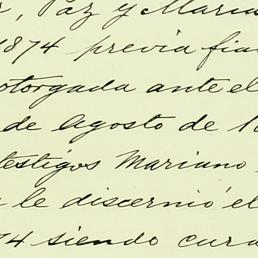 , Paz y María
1874 previa fia
otorgada ante el
de agosto de 1
testigos Mariano
le discernió el
74 siendo cura